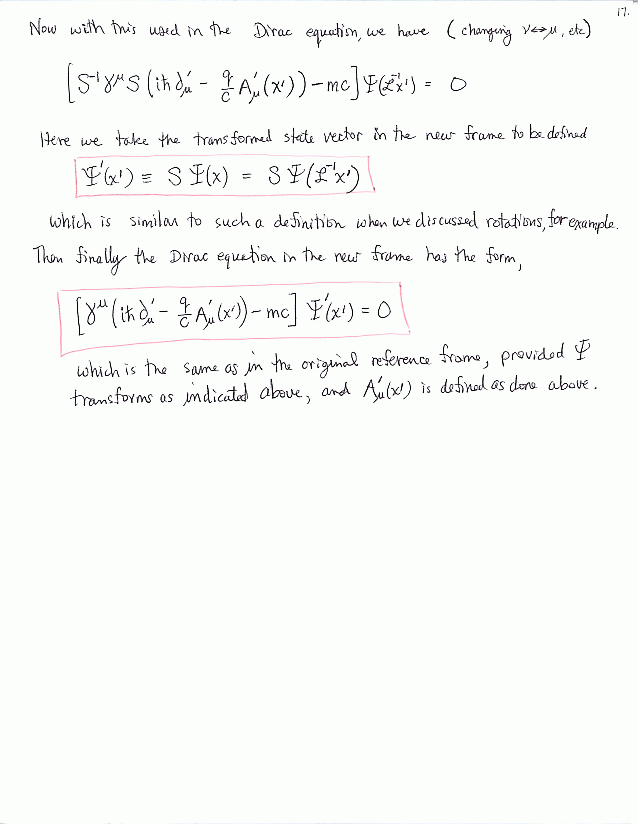 17.
Now with this used in the Dirac equation, we have ( changing ν↔μ, etc)
[S⁻¹γ^μ S (iħ ∂'_μ - q/c A'_μ(x')) - mc] Ψ(ℒ⁻¹x') = 0
Here we take the transformed state vector in the new frame to be defined
Ψ'(x') ≡ S Ψ(x) = S Ψ(ℒ⁻¹x')
which is similar to such a definition when we discussed rotations, for example.
Then finally the Dirac equation in the new frame has the form,
[γ^μ (iħ ∂'_μ - q/c A'_μ(x')) - mc] Ψ'(x') = 0
which is the same as in the original reference frame, provided Ψ
transforms as indicated above, and A'_μ(x') is defined as done above.